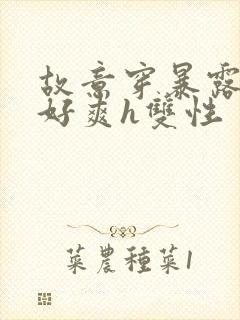 故意穿暴露
好爽h雙性
菜農種菜1